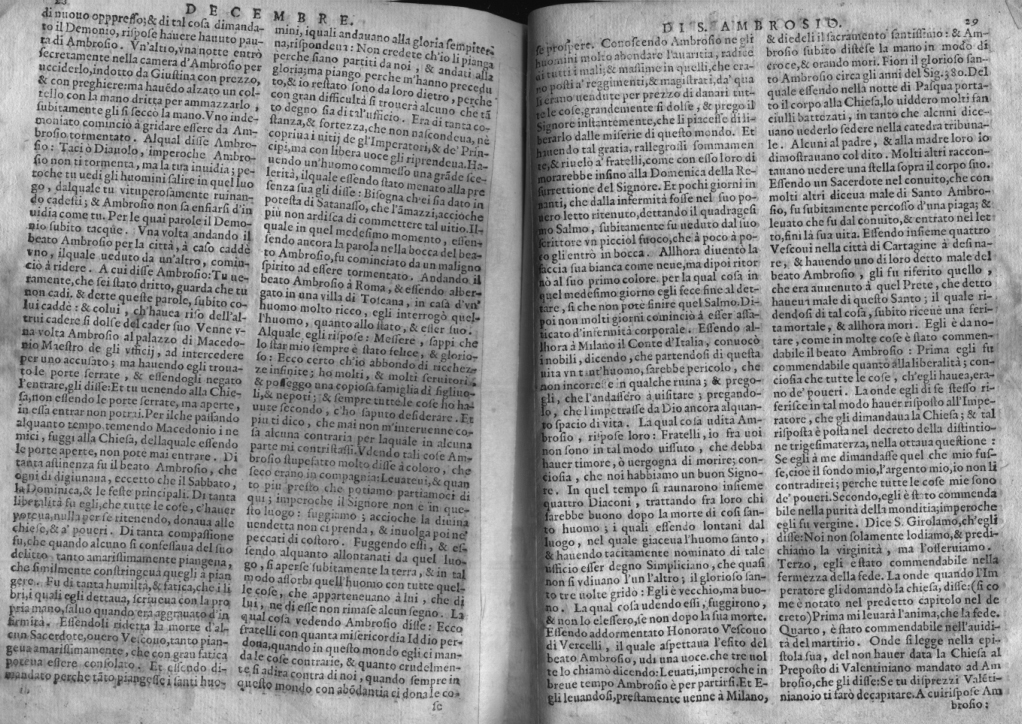 DECEMBRE.
di nuouo oppresso; & di tal cosa dimanda-
to il Demonio, rispose hauere hauuto pau-
ra di Ambrosio. Vn'altro, vna notte entrò
secretamente nella camera d'Ambrosio per
ucciderlo, indotto da Giustina con prezzo,
& con preghiere: ma hauẽdo alzato un col-
tello con la mano dritta per ammazzarlo,
subitamente gli si seccò la mano. Vno inde-
moniato cominciò à gridare essere da Am-
brosio tormentato. Alqual disse Ambro-
sio: Taci ò Diauolo, imperoche Ambro-
sio non ti tormenta, ma la tua inuidia; pe-
roche tu uedi gli huomini salire in quel luo
go, dalquale tu vituperosamente ruinan-
do cadesti; & Ambrosio non sa ensiarsi d'in
uidia come tu. Per le quai parole il Demo-
nio subito tacque. Vna volta andando il
beato Ambrosio per la città, à caso cadde
vno, ilquale ueduto da vn'altro, comin-
ciò à ridere. A cui disse Ambrosio: Tu ue-
ramente, che sei stato dritto, guarda che tu
non cadi. & dette queste parole, subito co-
lui cadde: & colui, ch'hauea riso dell'al-
trui cadere si dolse del cader suo Venne v-
na volta Ambrosio al palazzo di Macedo-
nio Maestro de gli vfficij, ad intercedere
per uno accusato; ma hauendo egli troua-
to le porte serrate, & essendogli negato
l'entrare, gli disse: Et tu uenendo alla Chie-
sa, non essendo le porte serrate, ma aperte,
in essa entrar non potrai. Per ilche passando
alquanto tempo temendo Macedonio i ne
mici, fuggì alla Chiesa, dellaquale essendo
le porte aperte, non pote mai entrare. Di
tanta astinenza fu il beato Ambrosio, che
ogni dì digiunaua, eccetto che il Sabbato,
la Dominica, & le feste principali. Di tanta
liberalità fu egli, che tutte le cose, c'hauer
poteua, nulla per se ritenendo, donaua alle
chiese, & a' poueri. Di tanta compassione
fu, che quando alcuno si confessaua del suo
delitto, tanto amarissimamente piangeua,
che similmente constringeua quegli à pian
gere. Fu di tanta humiltà, & fatica, che i li
bri, i quali egli dettaua, scriueua con la pro
pria mano, saluo quando era aggrauato d'in
firmità. Essendoli riderta la morte d'al-
cun Sacerdote, ouero Vescouo, tanto pian-
geua amarissimamente, che con gran fatica
poteua essere consolato. Et essendo di-
mandato perche tãto piangesse i santi huo-
mini, iquali andauano alla gloria sempiter-
na, rispondeua: Non credete ch'io li pianga
perche siano partiti da noi, & andati alla
gloria; ma piango perche m'hanno precedu
to, & io restato sono da loro dietro, perche
con gran difficultà si trouerà alcuno che tã
to degno sia di tal'ufficio. Era di tanta co-
stanza, & fortezza, che non nascondeua, nè
copriua i uitij de gl'Imperatori, & de' Prin-
cipi, ma con libera uoce gli riprendeua. Ha-
uendo un'huomo commesso una grãde sce-
lerità, ilquale essendo stato menato alla pre
senza sua gli disse: Bisogna ch'ei sia dato in
potestà di Satanasso, che l'amazzi, accioche
più non ardisca di commettere tal uitio. Il-
quale in quel medesimo momento, essen-
sendo ancora la parola nella bocca del bea-
to Ambrosio, fu cominciato da un maligno
spirito ad essere tormentato. Andando il
beato Ambrosio à Roma, & essendo alber-
gato in una villa di Toscana, in casa d'vn'
huomo molto ricco, egli interrogò quel-
l'huomo, quanto allo stato, & esser suo.
Alquale egli rispose: Messere, sappi che
lo star mio sempre è stato felice, & glorio-
so: Ecco certo ch'io abbondo di ricchez-
ze infinite; ho molti, & molti seruitori,
& posseggo una copiosa famiglia di figliuo-
li, & nepoti; & sempre tutte le cose ho ha-
uute secondo, c'ho saputo desiderare. Et
piu ti dico, che mai non m'interuenne co-
sa alcuna contraria per laquale in alcuna
parte mi contristassi. Vdendo tali cose Am-
brosio stupefatto molto disse à coloro, che
seco erano in compagnia: Leuateui, & quan
to piu presto che potiamo partiamoci di
qui; imperoche il Signore non è in que-
sto luogo: suggiamo; accioche la diuina
uendetta non ci prenda, & inuolga poi ne'
peccati di costoro. Fuggendo essi, & es-
sendo alquanto allontanati da quel luo-
go, si aperse subitamente la terra, & in tal
modo assorbì quell'huomo con tutte quel-
le cose, che apparteneuano à lui, che di
lui, ne di esse non rimase alcun segno. La
qual cosa vedendo Ambrosio disse: Ecco
fratelli con quanta misericordia Iddio per
dona, quando in questo mondo egli ci man-
da le cose contrarie, & quanto crudelmen-
te si adira contra di noi, quando sempre in
questo mondo con abõdantia ci dona le co-
se
DI S. AMBROSIO.
29
se prospere. Conoscendo Ambrosio ne gli
huomini molto abondare l'auaritia, radice
di tutti i mali; & massime in quelli, che era-
no posti a' reggimenti, & magistrati, da' qua
li erano uendute per prezzo di danari tut-
te le cose, grandemente si dolse, & prego il
Signore instantemente, che li piacesse di li-
berarlo dalle miserie di questo mondo. Et
hauendo tal gratia, rallegrossi sommamen
te, & riuelò a' fratelli, come con esso loro di
morarebbe insino alla Domenica della Re-
surrettione del Signore. Et pochi giorni in
nanti, che dalla infermità fosse nel suo po-
uero letto ritenuto, dettando il quadragesi
mo Salmo, subitamente fu ueduto dal suo
scrittore vn picciol fuoco, che à poco à po-
co gli entrò in bocca. Allhora diuentò la
faccia sua bianca come neue, ma poi ritor
nò al suo primo colore. per la qual cosa in
quel medesimo giorno egli fece fine al det-
tare, si che non pote finire quel Salmo. Di-
poi non molti giorni cominciò à esser assa-
licato d'infermità corporale. Essendo al-
lhora à Milano il Conte d'Italia, conuocò
i nobili, dicendo, che partendosi di questa
uita vn tant'huomo, sarebbe pericolo, che
non incorresse in qualche ruina; & prego-
gli, che l'andassero à uisitare; pregando-
lo, che l'impetrasse da Dio ancora alquan-
to spacio di vita. La qual cosa udita Am-
brosio, rispose loro: Fratelli, io fra uoi
non sono in tal modo uissuto, che debba
hauer timore, ò uergogna di morire; con-
ciosia, che noi habbiamo un buon Signo-
re. In quel tempo si raunarono insieme
quattro Diaconi, trattando fra loro chi
sarebbe buono dopo la morte di così san-
to huomo; i quali essendo lontani dal
luogo, nel quale giaceua l'huomo santo,
& hauendo tacitamente nominato di tale
ufficio esser degno Simpliciano, che quasi
non si vdiuano l'un l'altro; il glorioso san-
to tre uolte grido: Egli è vecchio, ma buo-
no. La qual cosa udendo essi, fuggirono,
& non lo elessero, se non dopo la sua morte.
Essendo addormentato Honorato Vescouo
di Vercelli, il quale aspettaua l'esito del
beato Ambrosio, udì una uoce, che tre uol
te lo chiamò dicendo: Leuati, imperoche in
breue tempo Ambrosio è per partirsi. Et E-
gli leuandosi, prestamente uenne à Milano,
& diedeli il sacramento santissimo: & Am-
brosio subito distese la mano in modo di
croce, & orando morì. Fiorì il glorioso san-
to Ambrosio circa gli anni del Sig. 380. Del
quale essendo nella notte di Pasqua porta-
to il corpo alla Chiesa, lo uiddero molti fan
ciulli battezati, in tanto che alcuni dice-
uano uederlo sedere nella catedra tribuna-
le. Alcuni al padre, & alla madre loro lo
dimostrauano col dito. Molti altri raccon-
tauano uedere una stella sopra il corpo suo.
Essendo un Sacerdote nel conuito, che con
molti altri diceua male di Santo Ambro-
sio, fu subitamente percosso d'una piaga; &
leuato che fu dal conuito, & entrato nel let
to, finì la sua uita. Essendo insieme quattro
Vescoui nella città di Cartagine à desina-
re, & hauendo uno di loro detto male del
beato Ambrosio, gli fu riferito quello,
che era auuenuto a quel Prete, che detto
haueua male di questo Santo; il quale ri-
dendosi di tal cosa, subito riceuè una feri
ta mortale, & allhora morì. Egli è da no-
tare, come in molte cose è stato commen-
dabile il beato Ambrosio: Prima egli fu
commendabile quanto alla liberalità; con-
ciosia che tutte le cose, ch'egli hauea, era-
no de' poueri. La onde egli di se stesso ri-
ferisce in tal modo hauer risposto all'Impe-
ratore, che gli dimandaua la Chiesa; & tal
risposta è posta nel decreto della distintio-
ne trigesimaterza, nella ottaua questione:
Se egli à me dimandasse quel che mio fus-
se, cioè il fondo mio, l'argento mio, io non li
contradirei; perche tutte le cose mie sono
de' poueri. Secondo, egli è stato commenda
bile nella purità della monditia; imperoche
egli fu vergine. Dice S. Girolamo, ch'egli
disse: Noi non solamente lodiamo, & predi-
chiamo la virginità, ma l'osseruiamo.
Terzo, egli è stato commendabile nella
fermezza della fede. La onde quando l'Im
peratore gli domandò la chiesa, disse: (si co
me è notato nel predetto capitolo nel de
creto) Prima mi leuarà l'anima, che la fede.
Quarto, è stato commendabile nell'auidi-
tà del martirio. Onde si legge nella epi-
stola sua, del non hauer data la Chiesa al
Preposto di Valentiniano mandato ad Am
brosio, che gli disse: Se tu disprezzi Valẽti-
niano io ti farò decapitare. A cui rispose Am
brosio: